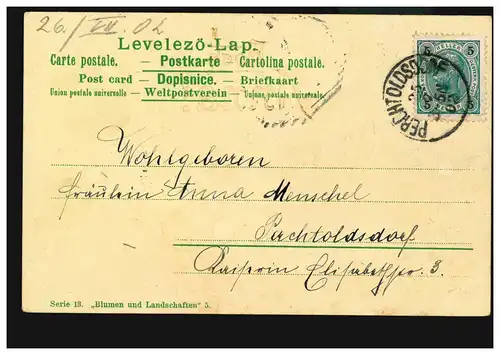 26./VII. 02
Levelezö-Lap.
Carte postale. — Postkarte — Cartolina postale.
Post card — Dopisnice. — Briefkaart
Union postale universelle — Weltpostverein — Unione postale universale.
5 5
HELLER HELLER
PERCHTOLDSDORF
Wohlgeboren
Fräulein Anna Menschel
Perchtoldsdorf
Kaiserin Elisabethstr. 3.
Serie 13. „Blumen und Landschaften" 5.